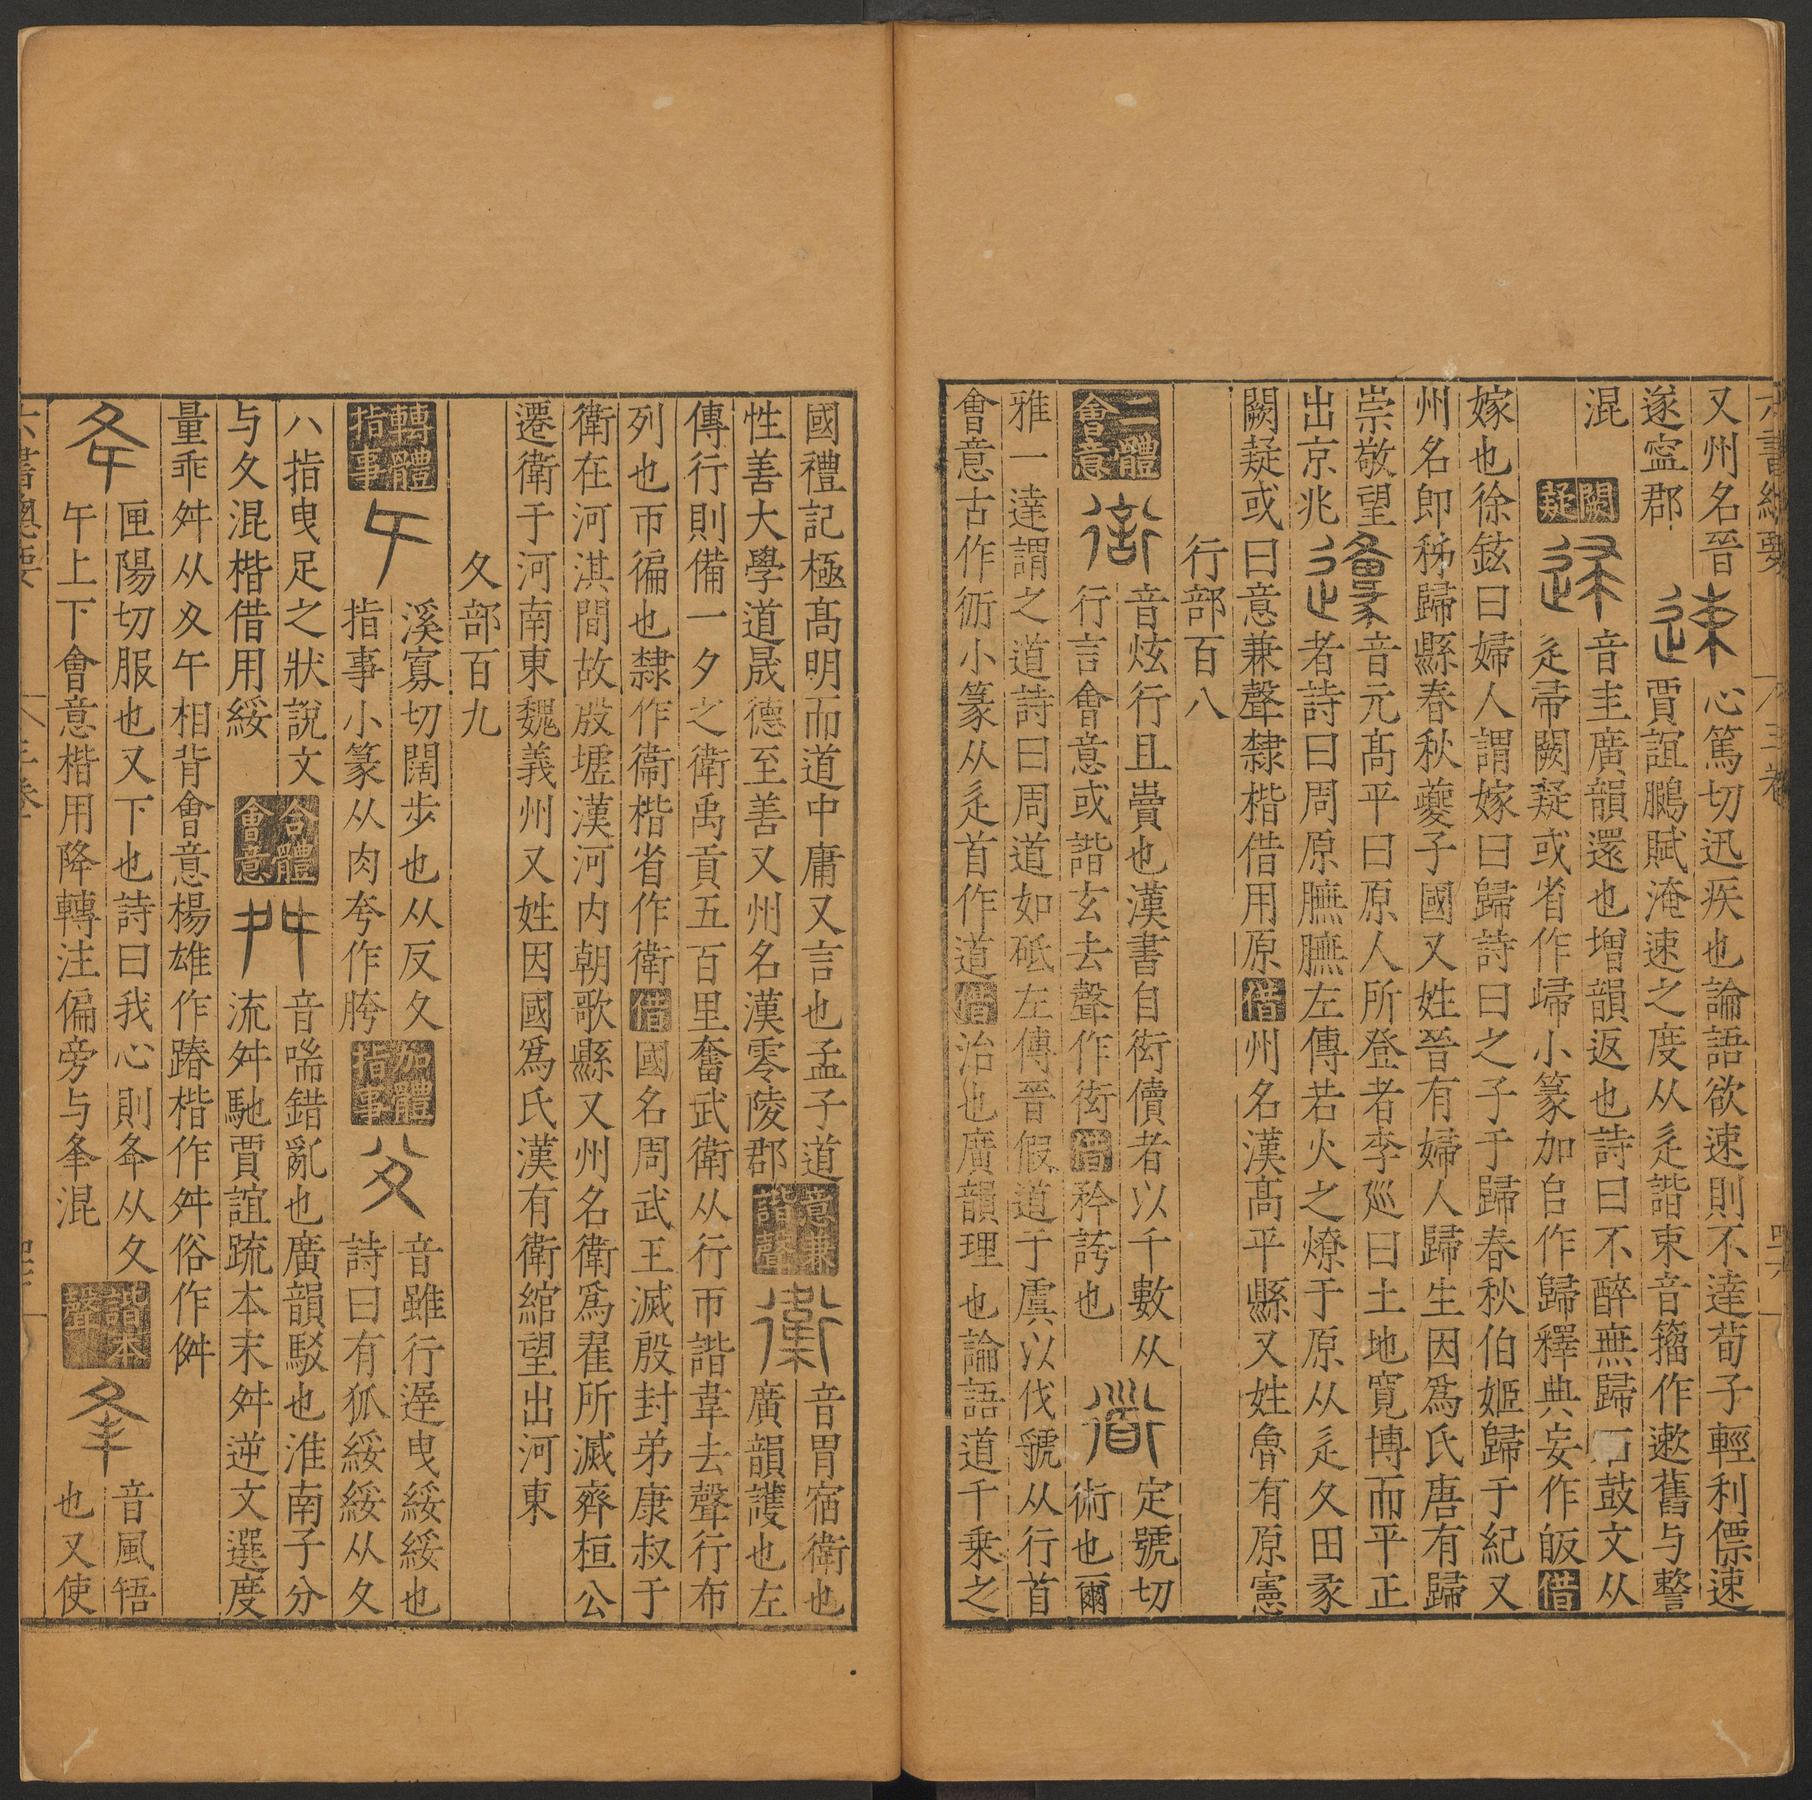 六書總要
三卷
四六
又州名晉
遂寍郡
速
心篤切迅疾也論語欲速則不達荀子輕利僄速
賈誼鵩賦淹速之度从辵諧束音籒作遬舊与警
混
闕疑
音圭廣韻還也增韻返也詩曰不醉無歸石鼓文从
辵帚闕疑或省作㱕小篆加𠂤作歸釋典妄作皈借
嫁也徐鉉曰婦人謂嫁曰歸詩曰之子于歸春秋伯姬歸于紀又
州名卽秭歸縣春秋夔子國又姓晉有婦人歸生因爲氏唐有歸
崇敬望
出京兆
邍
音元髙平曰原人所登者李廵曰土地寬博而平正
者詩曰周原膴膴左傳若火之燎于原从辵夂田彖
闕疑或曰意兼聲隸楷借用原借州名漢髙平縣又姓魯有原憲
行部百八
二體會意
衒
音炫行且賣也漢書自衒儥者以千數从
行言會意或諧玄去聲作衒借矜誇也
道
定號切
術也爾
雅一達謂之道詩曰周道如砥左傳晉假道于虞以伐虢从行首
會意古作𧗟小篆从辵首作道借治也廣韻理也論語道千乗之
國禮記極髙明而道中庸又言也孟子道
性善大學道晟德至善又州名漢零陵郡
意兼諧聲
衞
音胃宿衛也
廣韻護也左
傳行則備一夕之衛禹貢五百里奮武衛从行帀諧韋去聲行布
列也帀徧也隸作衞楷省作衛借國名周武王滅殷封弟康叔于
衛在河淇間故殷墟漢河内朝歌縣又州名衛爲翟所滅齊桓公
遷衛于河南東魏義州又姓因國爲氏漢有衛綰望出河東
夂部百九
轉體指事
㐄
溪寡切闊步也从反夂
指事小篆从肉夸作胯
加體指事
夊
音雖行遲曳綏綏也
詩曰有狐綏綏从夂
八指曳足之狀說文
与夂混楷借用綏
合體會意
舛
音喘錯亂也廣韻駁也淮南子分
流舛馳賈誼䟽本末舛逆文選度
量乖舛从夂㐄相背會意楊雄作踳楷作舛俗作舛
夅
匣陽切服也又下也詩曰我心則夅从夂
㐄上下會意楷用降轉注偏旁与夆混
諧本聲
夆
音風牾
也又使
六書總要
三卷